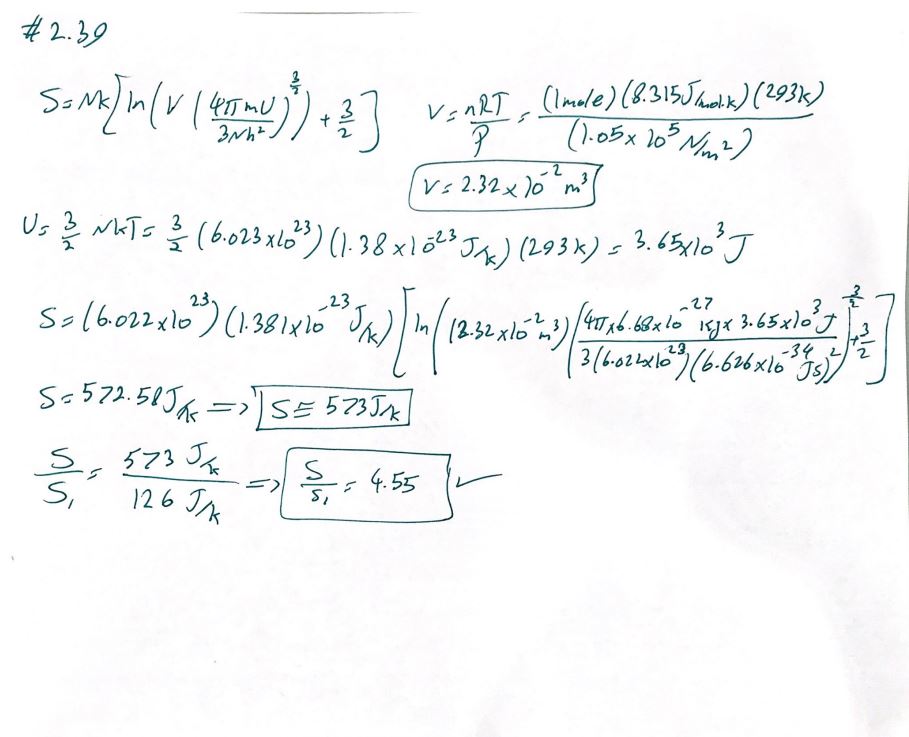 # 2.39
S = Nk[ln(V(4πmU/3Nh²)^(3/2)) + 3/2]   V = nRT/P = (1mole)(8.315J/mol.k)(293k)/(1.05×10⁵ N/m²)
V = 2.32×10⁻² m³
U = 3/2 NkT = 3/2 (6.023×10²³)(1.38×10⁻²³ J/k)(293k) = 3.65×10³ J
S = (6.022×10²³)(1.381×10⁻²³ J/k)[ln((2.32×10⁻² m³)(4π×6.68×10⁻²⁷ Kg× 3.65×10³ J/3(6.022×10²³)(6.626×10⁻³⁴ Js)²)^(3/2)) + 3/2]
S = 572.58 J/k => S ≅ 573 J/k
S/S₁ = 573 J/k / 126 J/k => S/S₁ = 4.55 ✓